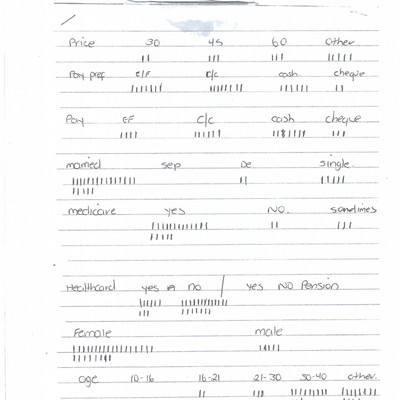 Price 30 45 60 Other
Pay pref E/F C/c cash cheque
Pay EF C/c cash cheque
married sep De single
medicare yes NO. sometimes
Healthcard yes no / yes NO Pension
Female male
age 10-16 16-21 21-30 30-40 other.